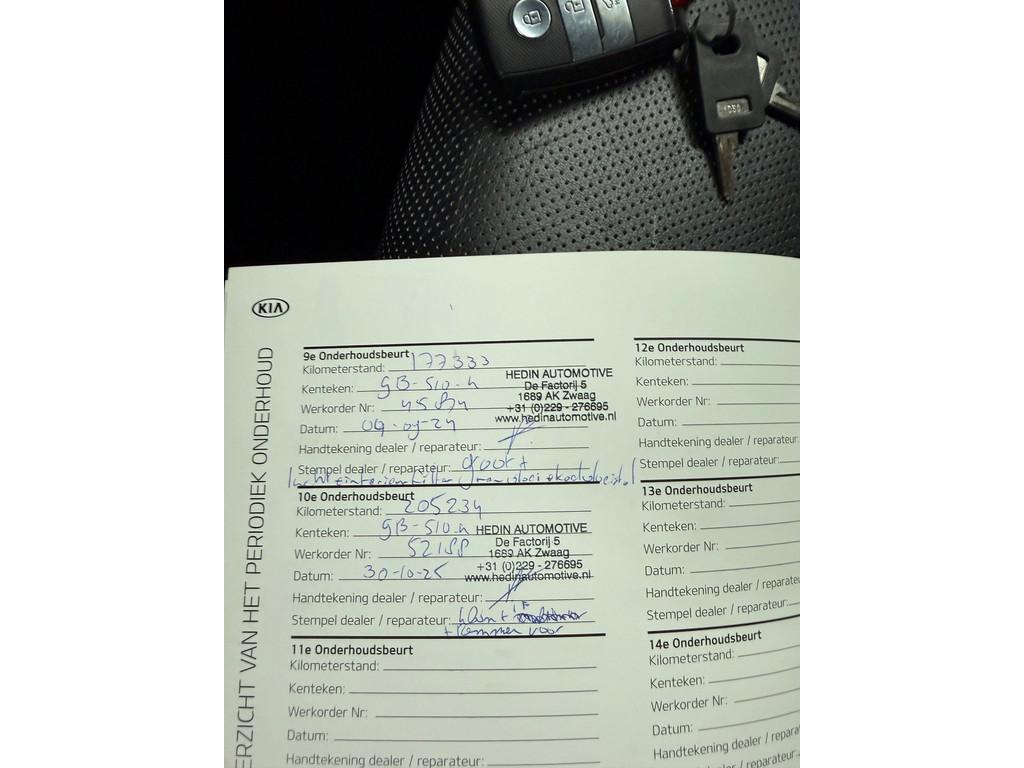 KIA
ERZICHT VAN HET PERIODIEK ONDERHOUD
9e Onderhoudsbeurt
Kilometerstand: 177333
Kenteken: GB-510-h
Werkorder Nr:
Datum:
Handtekening dealer / reparateur:
Stempel dealer / reparateur: groot +
HEDIN AUTOMOTIVE
De Factorij 5
1689 AK Zwaag
+31 (0)229 - 276695
www.hedinautomotive.nl
10e Onderhoudsbeurt
Kilometerstand: 205234
Kenteken: GB-510-h
Werkorder Nr: 52188
Datum: 30-10-25
Handtekening dealer / reparateur:
Stempel dealer / reparateur:
+ remmen voor
HEDIN AUTOMOTIVE
De Factorij 5
1689 AK Zwaag
+31 (0)229 - 276695
www.hedinautomotive.nl
11e Onderhoudsbeurt
Kilometerstand:
Kenteken:
Werkorder Nr:
Datum:
Handtekening dealer / reparateur:
12e Onderhoudsbeurt
Kilometerstand:
Kenteken:
Werkorder Nr:
Datum:
Handtekening dealer / reparateur:
Stempel dealer / reparateur:
13e Onderhoudsbeurt
Kilometerstand:
Kenteken:
Werkorder Nr:
Datum:
Handtekening dealer / reparateu
Stempel dealer / reparateur:
14e Onderhoudsbeurt
Kilometerstand:
Kenteken:
Werkorder Nr:
Datum:
Handtekening dealer / repara
/ reparateur: